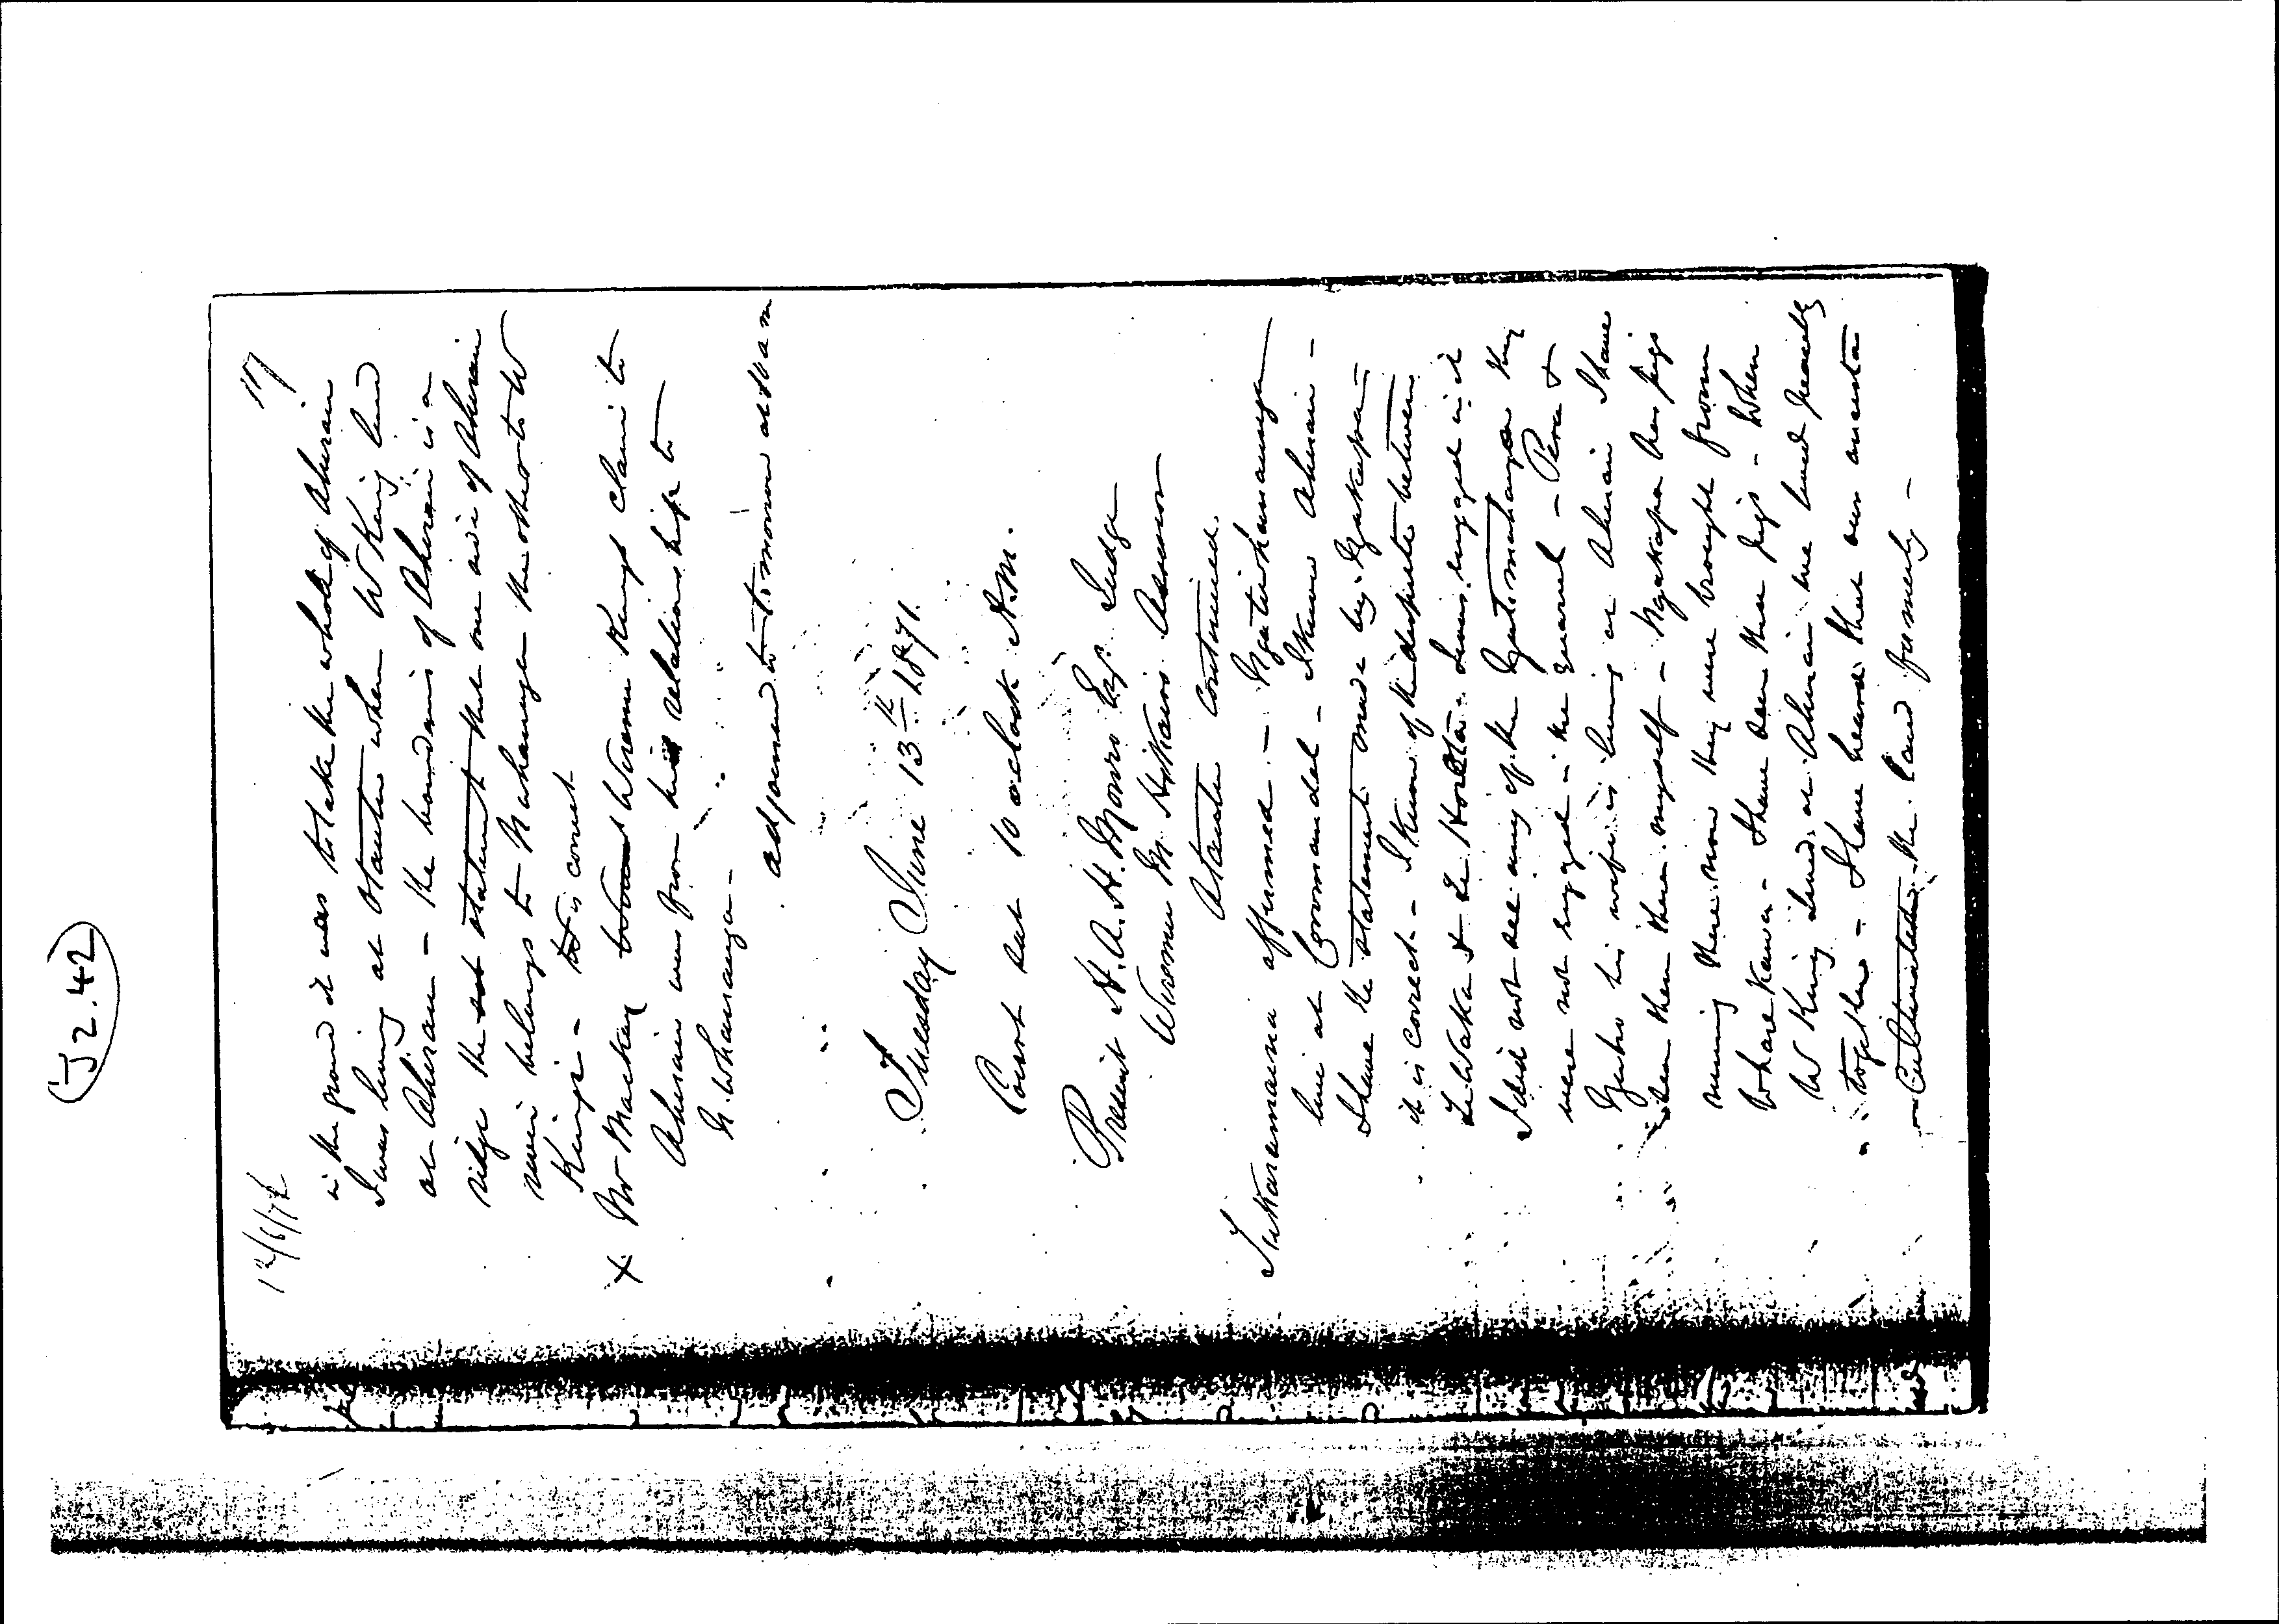 J2.42
12/6/71
117
in the ground it was to take the whole of Ahurain
I was living at Otautu when W King lived
at Ahirau - the boundaries of Ahurain is a
ridge the statement that one side of Ahurain
belongs to N'whanaunga the other to W
King's - is correct
X Mr Mackay Wiremu Kings claim to
Ahurain was from his relationship to
N. Whanaunga -
adjourned to tomorrow at 10 am
Tuesday June 13th 1871.
Court sat 10 oclock A.M.
Present H. A. H. Monro Esq. Judge
Wiremu Assessor
Otautu Continued.
affirmed - Ngatiwhanaunga
live at Coromandel - I know Ahurain -
I have the statement made by Ngakapa -
it is correct - I know of the dispute between
Te Waka & Te being engaged in it
I did not see any of the Ngatimaha they
were not engaged in the quarrel - Pera &
his wife is living at Ahurain I have
seen them there myself - Ngakapa has pigs
running there now they were brought from
Wharekawa - I have seen these pigs - When
W King lived at Ahurain we lived peaceably
together - I have heard that our ancestors
Cultivated the land formerly -